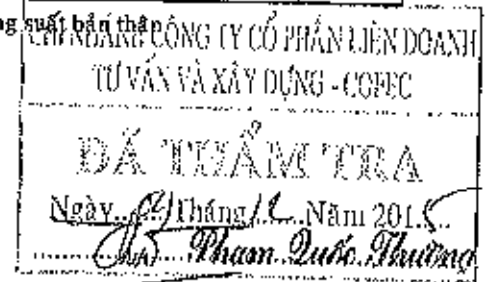 ng suất bản thân
CHI NHÁNH CÔNG TY CỔ PHẦN LIÊN DOANH
TƯ VẤN VÀ XÂY DỰNG - COFEC
ĐÃ THẨM TRA
Ngày Tháng Năm 2015
Phạm Quốc Thường